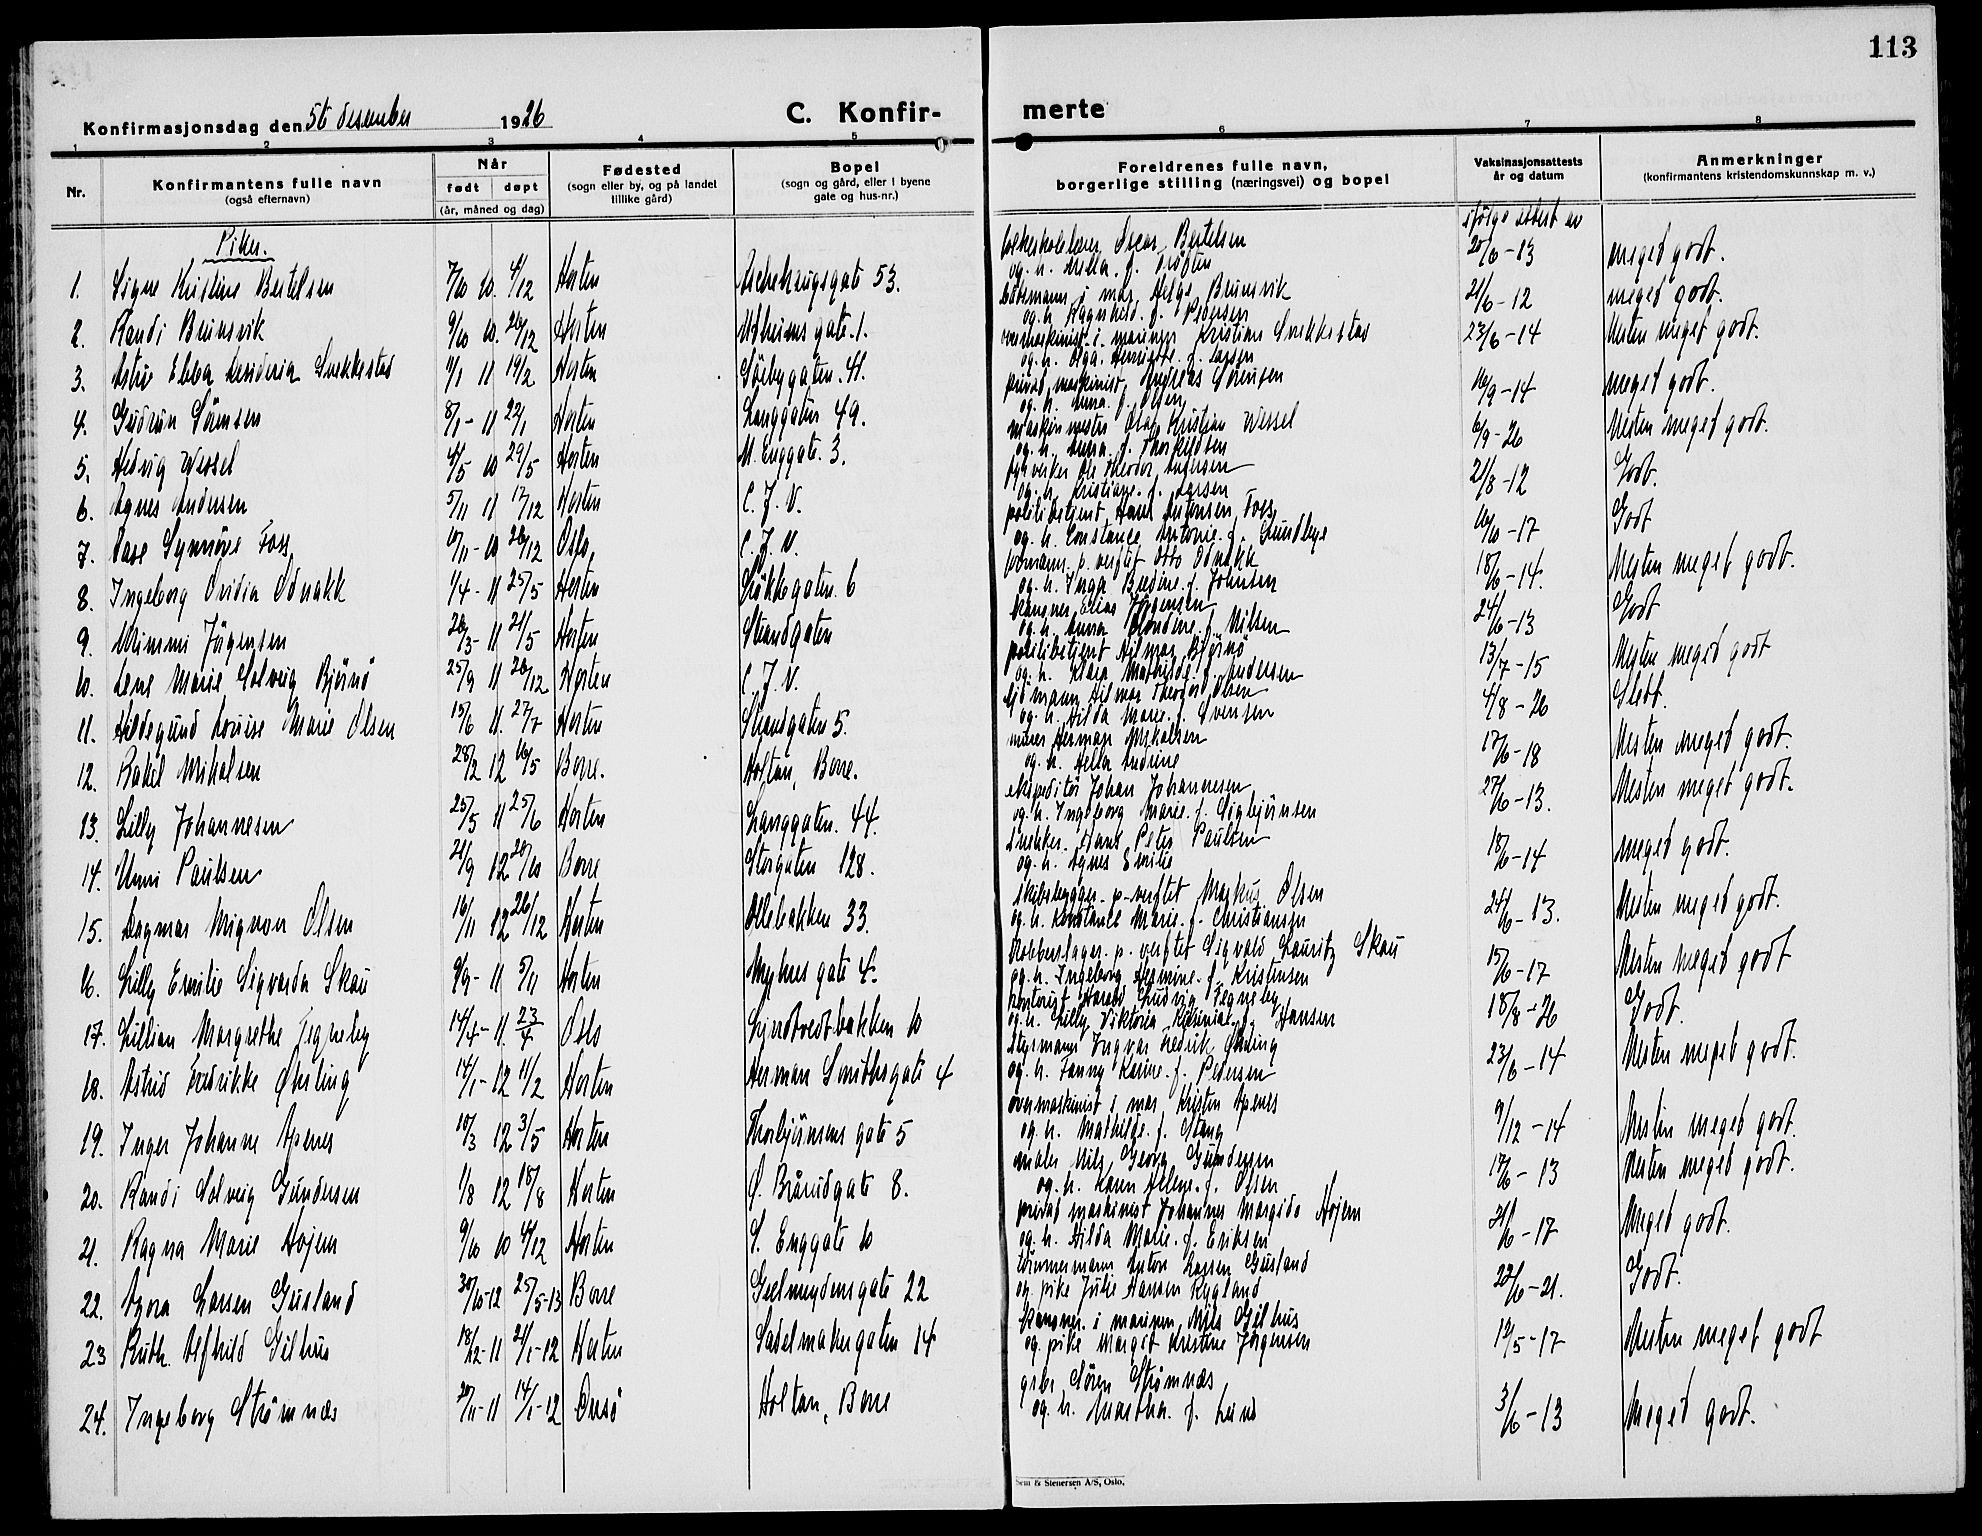 113
Konfirmasjonsdag den 5te desember 1926
C. Konfir-
merte
1 2 3 4 5 6 7 8
Nr.
Konfirmantens fulle navn
(også efternavn)
Når
født døpt
(år, måned og dag)
Fødested
(sogn eller by, og på landet
tillike gård)
Bopel
(sogn og gård, eller i byene
gate og hus-nr.)
Foreldrenes fulle navn,
borgerlige stilling (næringsvei) og bopel
Vaksinasjonsattests
år og datum
Anmerkninger
(konfirmantens kristendomskunnskap m. v.)
Piker.
ifølge attest av
Oscar Bertelsen
1. Signe Kristine Bertelsen 7/10 10. 4/12 Horten 53. 20/6-13 meget godt.
i mar. Helge Brunsvik
2. Randi Brunsvik 9/10 10. 26/12 Horten gate 1. og h. Ragnhild f. Pedersen 21/6-12 meget godt.
overmaskinist i marinen Kristian Snekkestad
3. Ebba Snekkestad 11/1 11 19/2 Horten og h. Olga Henriette f. Larsen 23/6-14 Nesten meget godt.
privat maskinist Andreas Sörensen
4. Gudrun Sörensen 8/1-11 22/1 Horten Langgaten 49. og h. Anna f. Olsen 16/9-14 meget godt.
maskinmester Olaf Kristian Wessel
5. Hedvig Wessel 4/5 10 29/5 Horten N. Enggate 3. og h. Anna f. Thorkildsen 6/9-26 Nesten meget godt.
Ole Theodor Andersen
6. Agnes Andersen 5/11 11 17/12 Horten C. J. V. og h. Kristiane f. Larsen 21/8-12 Godt.
politibetjent Foss
7. Aase Synnöve Foss 10/11-10 26/12 Oslo C. J. V. og h. Constance Antonie f. Grundbye 16/6-17 Godt
p. verftet Otto Odnakk
8. Ingeborg Ovidia Odnakk 1/4-11 25/5 Horten Lökkegaten 6 og h. Inga Bredine f. Johnsen 18/6-14. Nesten meget godt.
Elias Jörgensen
9. Mimmi Jörgensen 20/3-11 21/5 Horten Strandgaten og h. Anna f. Nilsen 24/6-13 Godt
politibetjent Hilmar Björnö
10. Lene Marie Solveig Björnö 25/9 11 26/12 Horten C. J. V. og h. Klara Mathilde f. Andersen 13/7-15 Nesten meget godt
Hilmar Theodor Olsen
11. Hildegund Louise Marie Olsen 15/6 11. 27/7 Horten Strandgaten 5. og h. Hilda Marie f. Svensen 4/8-26 Slett.
Herman Mikalsen
12. Rakel Mikalsen 28/2 12 16/5 Borre. Holtan, Borre. og h. Hella Andrine 17/6-18 Nesten meget godt.
ekspeditör Johan Johannesen
13. Lilly Johannesen 25/5 11 25/6 Horten Langgaten 44. og h. Ingeborg Marie f. Sigbjörnsen 27/6-13. Nesten meget godt.
snekker Hans Peter Paulsen
14. Unni Paulsen 21/9 12 20/10 Borre Storgaten 128. og h. Agnes Emilie 18/6-14 meget godt.
skibsbygger p. verftet Markus Olsen
15. Dagmar Mignon Olsen 16/11 12 26/12 Horten Ollebakken 33. og h. Konstance Marie f. Christiansen 24/6-13. Nesten meget godt.
Kobberslager p. verftet Sigvald Lauritz Skau
16. Lilly Emilie Sigvarda Skau 9/9-11 5/11 Horten Myhres gate 4. og h. Ingeborg Hermine f. Kristensen 15/6-17 Nesten meget godt
kontorist Harald Ludvig Tegneby
17. Lillian Margrethe Tegneby 14/4-11. 23/4 Oslo 10 og h. Lilly Viktoria f. Hansen 18/8-26 Godt.
Styrmann Ingvar Fredrik Öhrling
18. Astrid Fredrikke Öhrling 14/1-12 11/2 Horten Herman Smithsgate 4 og h. Fanny Karine f. Pedersen 23/6-14 Nesten meget godt.
overmaskinist i mar. Kristen Apenes
19. Inger Johanne Apenes 10/3 12 3/5 Horten Thorbjörnsens gate 5 og h. Mathilde f. Stang 9/12-14 Nesten meget godt.
maler Nils Georg Gundersen
20. Randi Solveig Gundersen 1/8 12 18/8 Horten Ö. Brårudgate 8. og h. Karen Helene f. Olsen 17/6-13 Nesten meget godt.
privat maskinist Johannes Margido Höjem
21. Ragna Marie Höjem 9/10 10 4/12 Horten S. Enggate 10 og h. Hilda Marie f. Eriksen 21/6-17 Meget godt.
tömmermann Anton Larsen Gusland
22. Larsen Gusland 30/10-12 25/5-13 Borre Geelmuydensgate 22 og pike Julie Hansen Rygland 22/6-21. Godt.
i marinen Nils Gilhus
23 Ruth Alfhild Gilhus 18/12-11 21/1-12 Horten Sadelmakergaten 14 og pike Margit Kristine Jörgensen 19/5-17 Nesten meget godt
Sören Strömnæs
24. Ingeborg Strömnæs 20/11-11 14/1-12 Onsö Holtan, Borre og h. Martha f. Lund 3/6-13 Meget godt.
Sem & Stenersen A/S, Oslo.